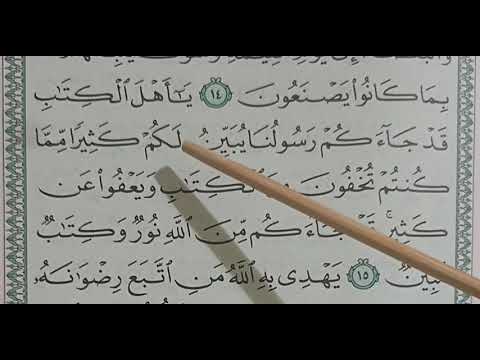 بِمَا كَانُوا۟ يَصْنَعُونَ ١٤ يَـٰٓأَهْلَ ٱلْكِتَـٰبِ
قَدْ جَآءَكُمْ رَسُولُنَا يُبَيِّنُ لَكُمْ كَثِيرًا مِّمَّا
كُنتُمْ تُخْفُونَ ٱلْكِتَـٰبِ وَيَعْفُوا۟ عَن
كَثِيرٍ ۚ جَآءَكُم مِّنَ ٱللَّهِ نُورٌ وَكِتَـٰبٌ
مُّبِينٌ ١٥ يَهْدِى بِهِ ٱللَّهُ مَنِ ٱتَّبَعَ رِضْوَٰنَهُۥ